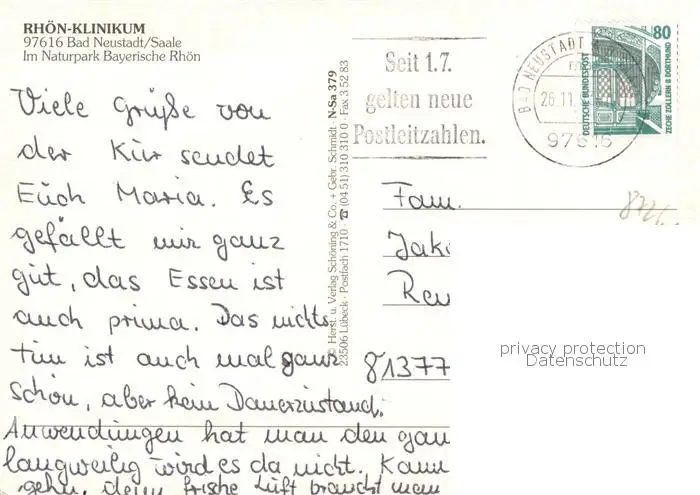 RHÖN-KLINIKUM
97616 Bad Neustadt/Saale
Im Naturpark Bayerische Rhön
Viele Grüße von
der Kur sendet
Euch Maria. Es
gefällt mir ganz
gut, das Essen ist
auch prima. Das nichts
tun ist auch mal ganz
Schön, aber kein Dauerzustand.
Anwendungen hat man den gan
langweilig wird es da nicht. Kann
gehn, denn frische Luft braucht man
© Herst. u. Verlag Schöning & Co. + Gebr. Schmidt · N-Sa 379
23506 Lübeck · Postfach 1710 · ☎ (04 51) 310 310 0 · Fax 3 52 83
Seit 1.7.
gelten neue
Postleitzahlen.
BAD NEUSTADT
26.11.
97616
80
DEUTSCHE BUNDESPOST
ZECHE ZOLLERN II DORTMUND
Fam.
Jak
81377
privacy protection
Datenschutz